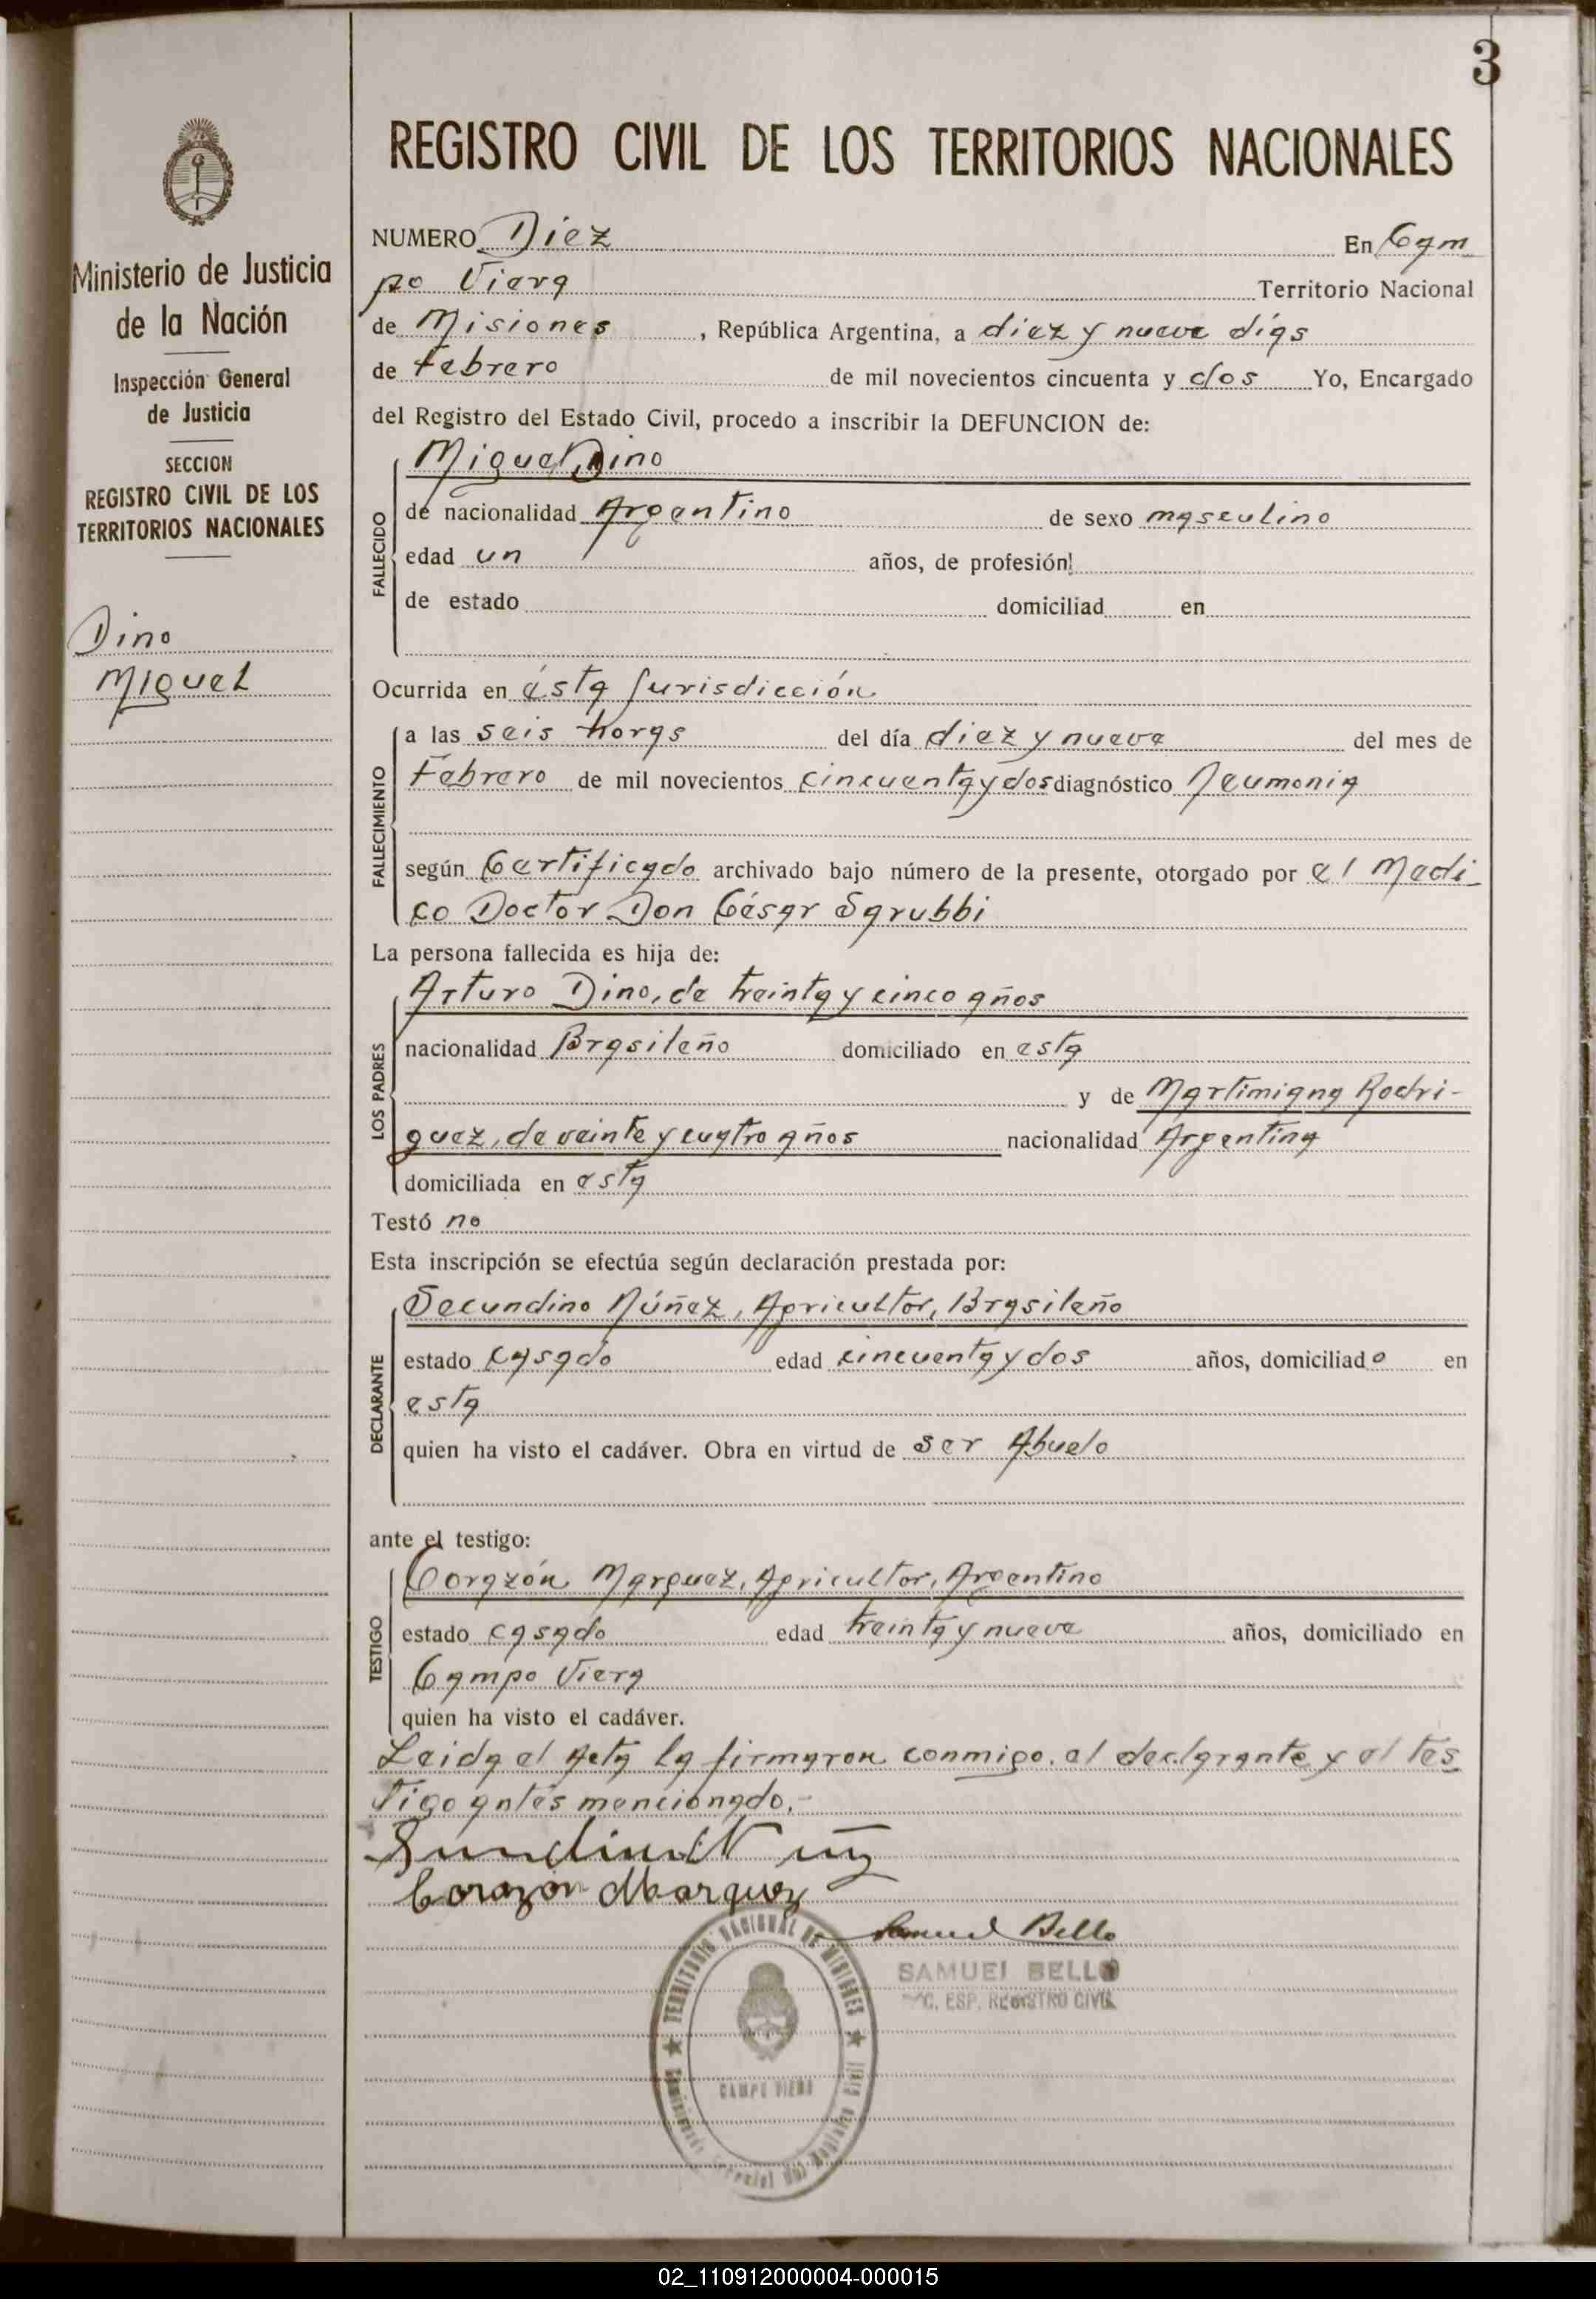 3
REGISTRO CIVIL DE LOS TERRITORIOS NACIONALES
Ministerio de Justicia
de la Nación
Inspección General
de Justicia
SECCION
REGISTRO CIVIL DE LOS
TERRITORIOS NACIONALES
Dino
Miguel
NUMERO Diez En Cam
po Viera Territorio Nacional
de Misiones, República Argentina, a diez y nueve días
de Febrero de mil novecientos cincuenta y dos Yo, Encargado
del Registro del Estado Civil, procedo a inscribir la DEFUNCION de:
FALLECIDO
Miguel Dino
de nacionalidad Argentino de sexo masculino
edad un años, de profesión
de estado domiciliad en
Ocurrida en ésta Jurisdicción
FALLECIMIENTO
a las seis horas del día diez y nueve del mes de
Febrero de mil novecientos cincuenta y dos diagnóstico Neumonia
según Certificado archivado bajo número de la presente, otorgado por el Medi-
co Doctor Don César Sarubbi
La persona fallecida es hija de:
LOS PADRES
Arturo Dino, de treinta y cinco años
nacionalidad Brasileño domiciliado en esta
y de Martimiana Rodri-
guez, de veinte y cuatro años nacionalidad Argentina
domiciliada en esta
Testó no
Esta inscripción se efectúa según declaración prestada por:
DECLARANTE
Secundino Núñez, Agricultor, Brasileño
estado casado edad cincuenta y dos años, domiciliado en
esta
quien ha visto el cadáver. Obra en virtud de ser Abuelo
ante el testigo:
TESTIGO
Corazón Marquez, Agricultor, Argentino
estado casado edad treinta y nueve años, domiciliado en
Campo Viera
quien ha visto el cadáver.
Leida el Acta la firmaron conmigo, el declarante y el tes
tigo antes mencionado.-
Corazon Marquez
Samuel Bello
SAMUEL BELLO
ESP. REGISTRO CIVIL
TERRITORIO NACIONAL DE MISIONES
CAMPO VIERA
02_110912000004-000015